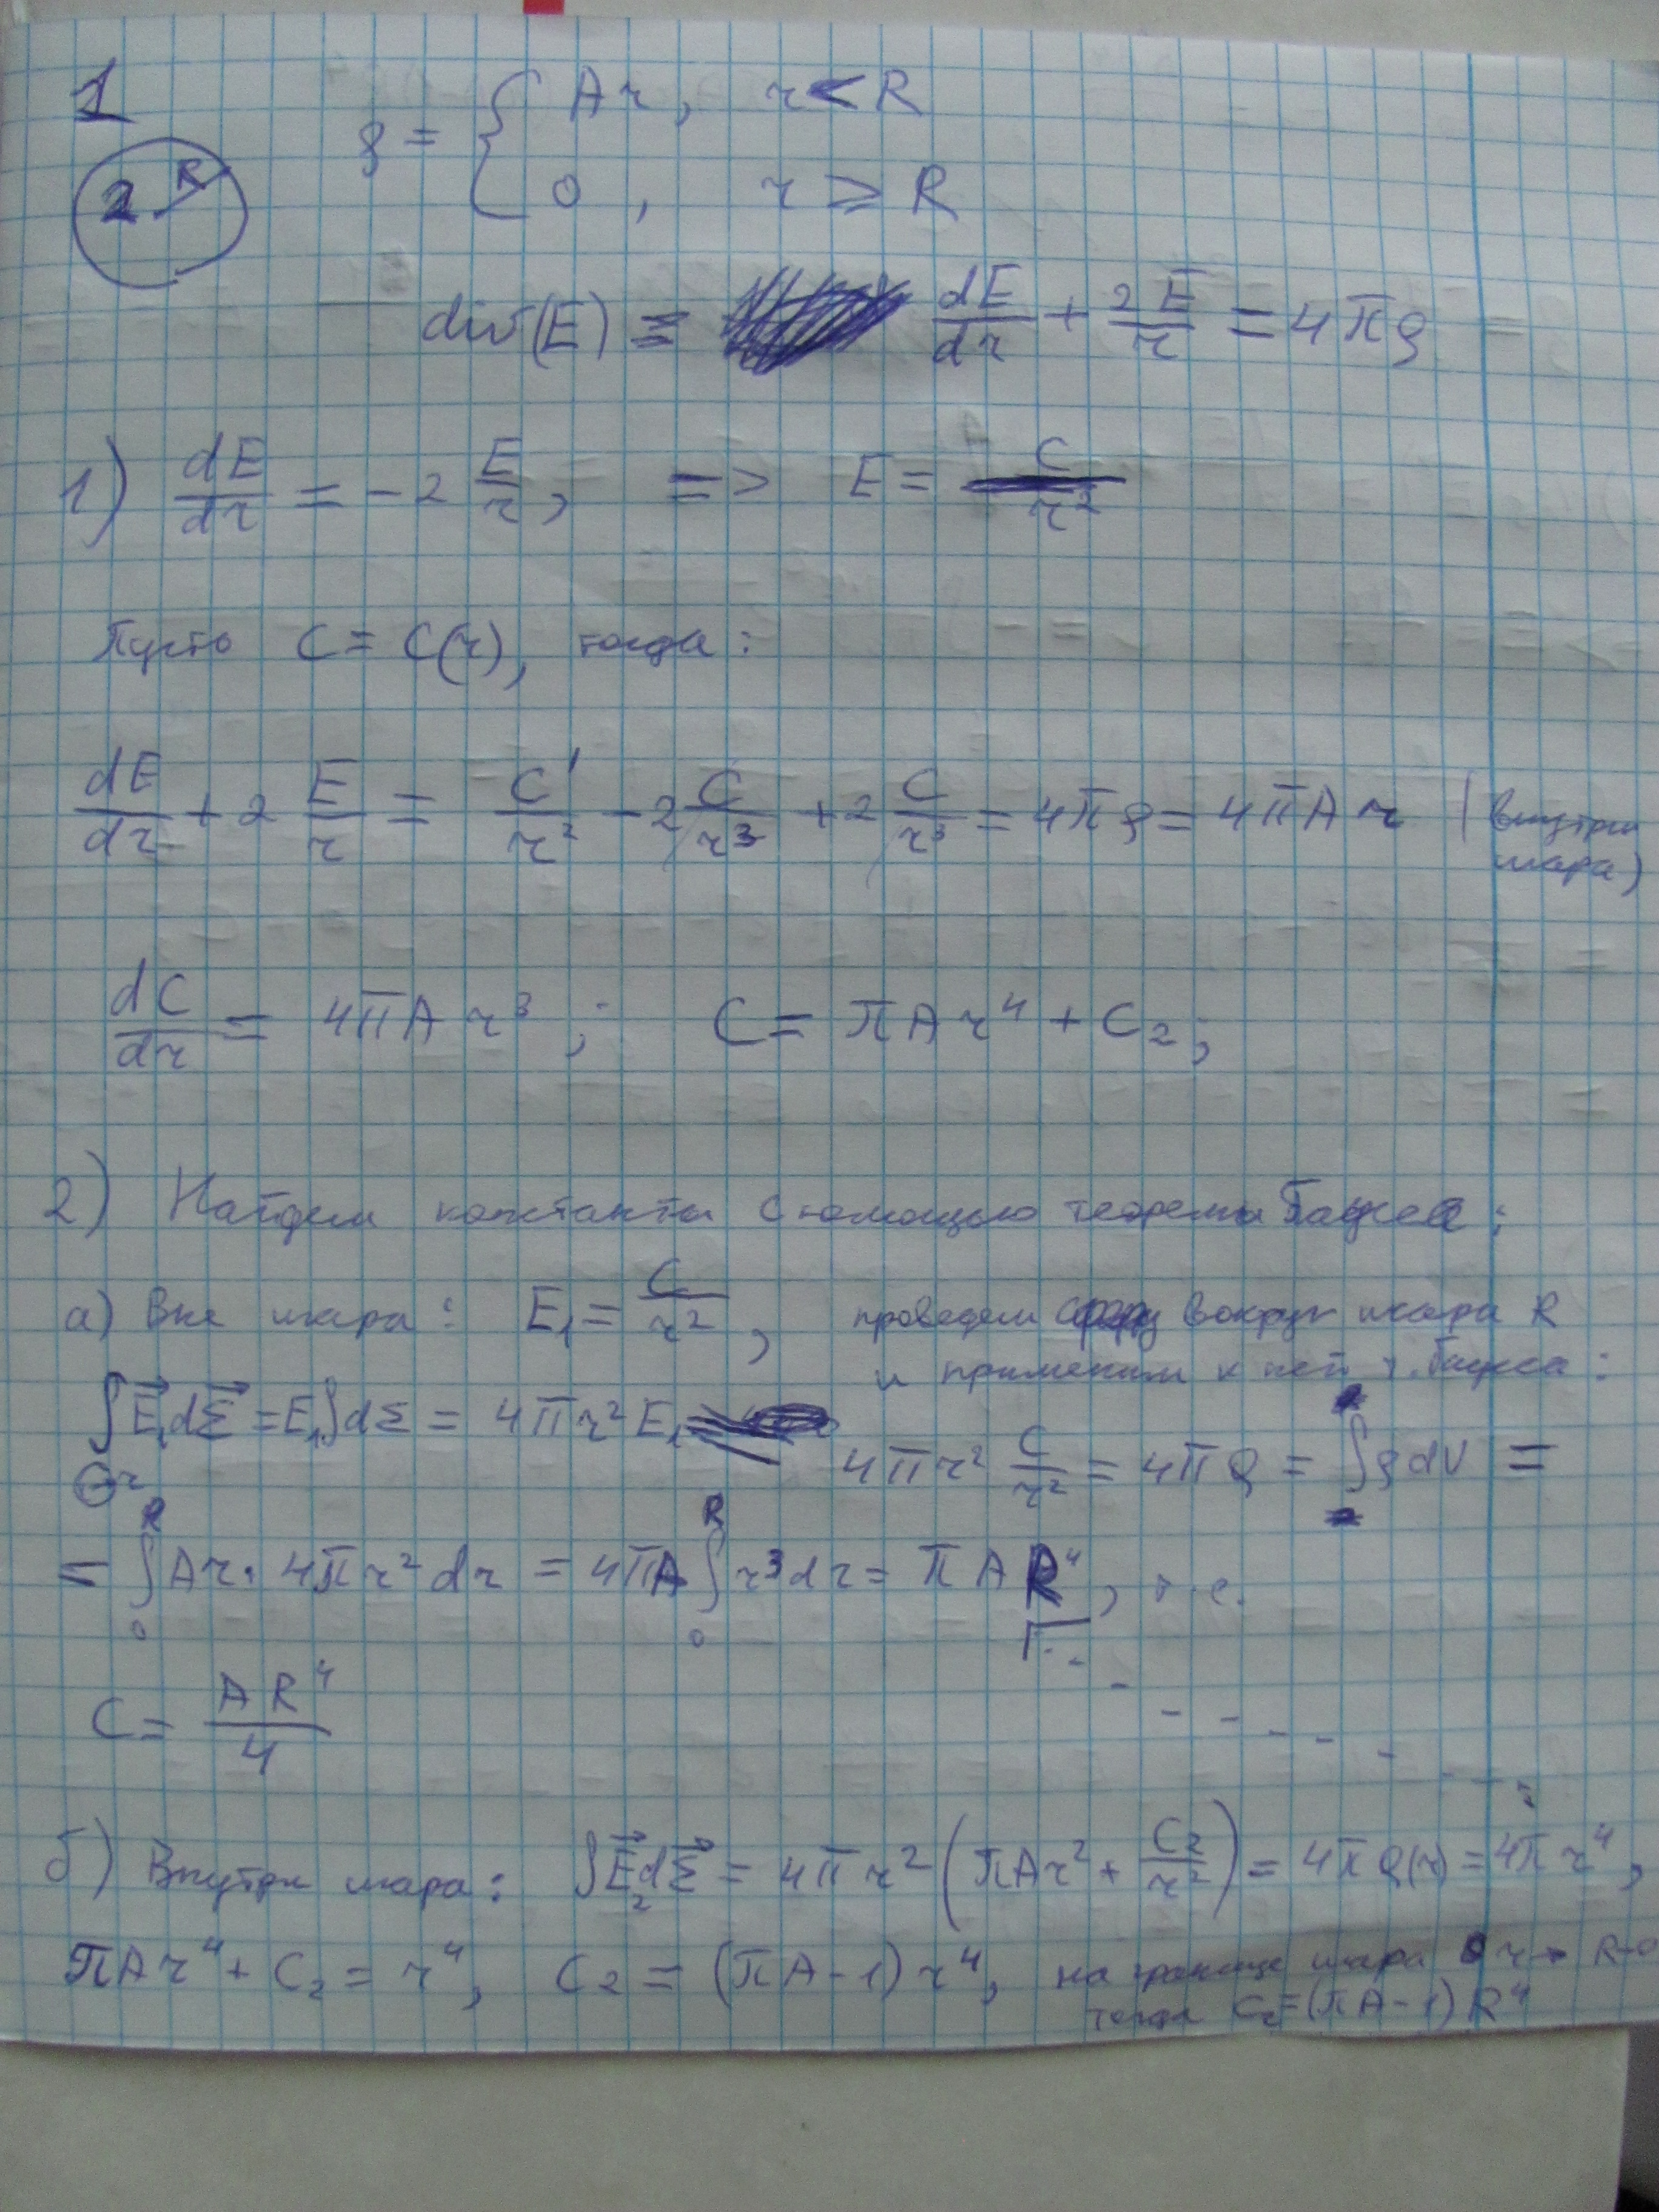 1
2 R
ρ = { Ar, r < R
0, r ≥ R
div(E) = dE/dr + 2E/r = 4πρ
1) dE/dr = -2 E/r, => E = C/r²
Пусть C = C(r), тогда:
dE/dr + 2 E/r = C'/r² - 2 C/r³ + 2 C/r³ = 4πρ = 4πAr (внутри
шара)
dC/dr = 4πAr³; C = πAr⁴ + C₂;
2) Найдем константы с помощью теоремы Гаусса:
а) Вне шара: E₁ = C/r², проведем сферу вокруг шара R
и применим к ней т. Гаусса:
∫E₁dΣ = E₁∫dΣ = 4πr²E₁
r
4πr² C/r² = 4πQ = ∫ρdV =
= ∫₀ᴿ Ar · 4πr²dr = 4πA ∫₀ᴿ r³dr = πAR⁴, т.е.
C = AR⁴/4
б) Внутри шара: ∫E₂dΣ = 4πr² (πAr² + C₂/r²) = 4πQ(r) = 4πr⁴,
πAr⁴ + C₂ = r⁴, C₂ = (πA-1)r⁴, на границе шара r → R-0
тогда C₂ = (πA-1)R⁴